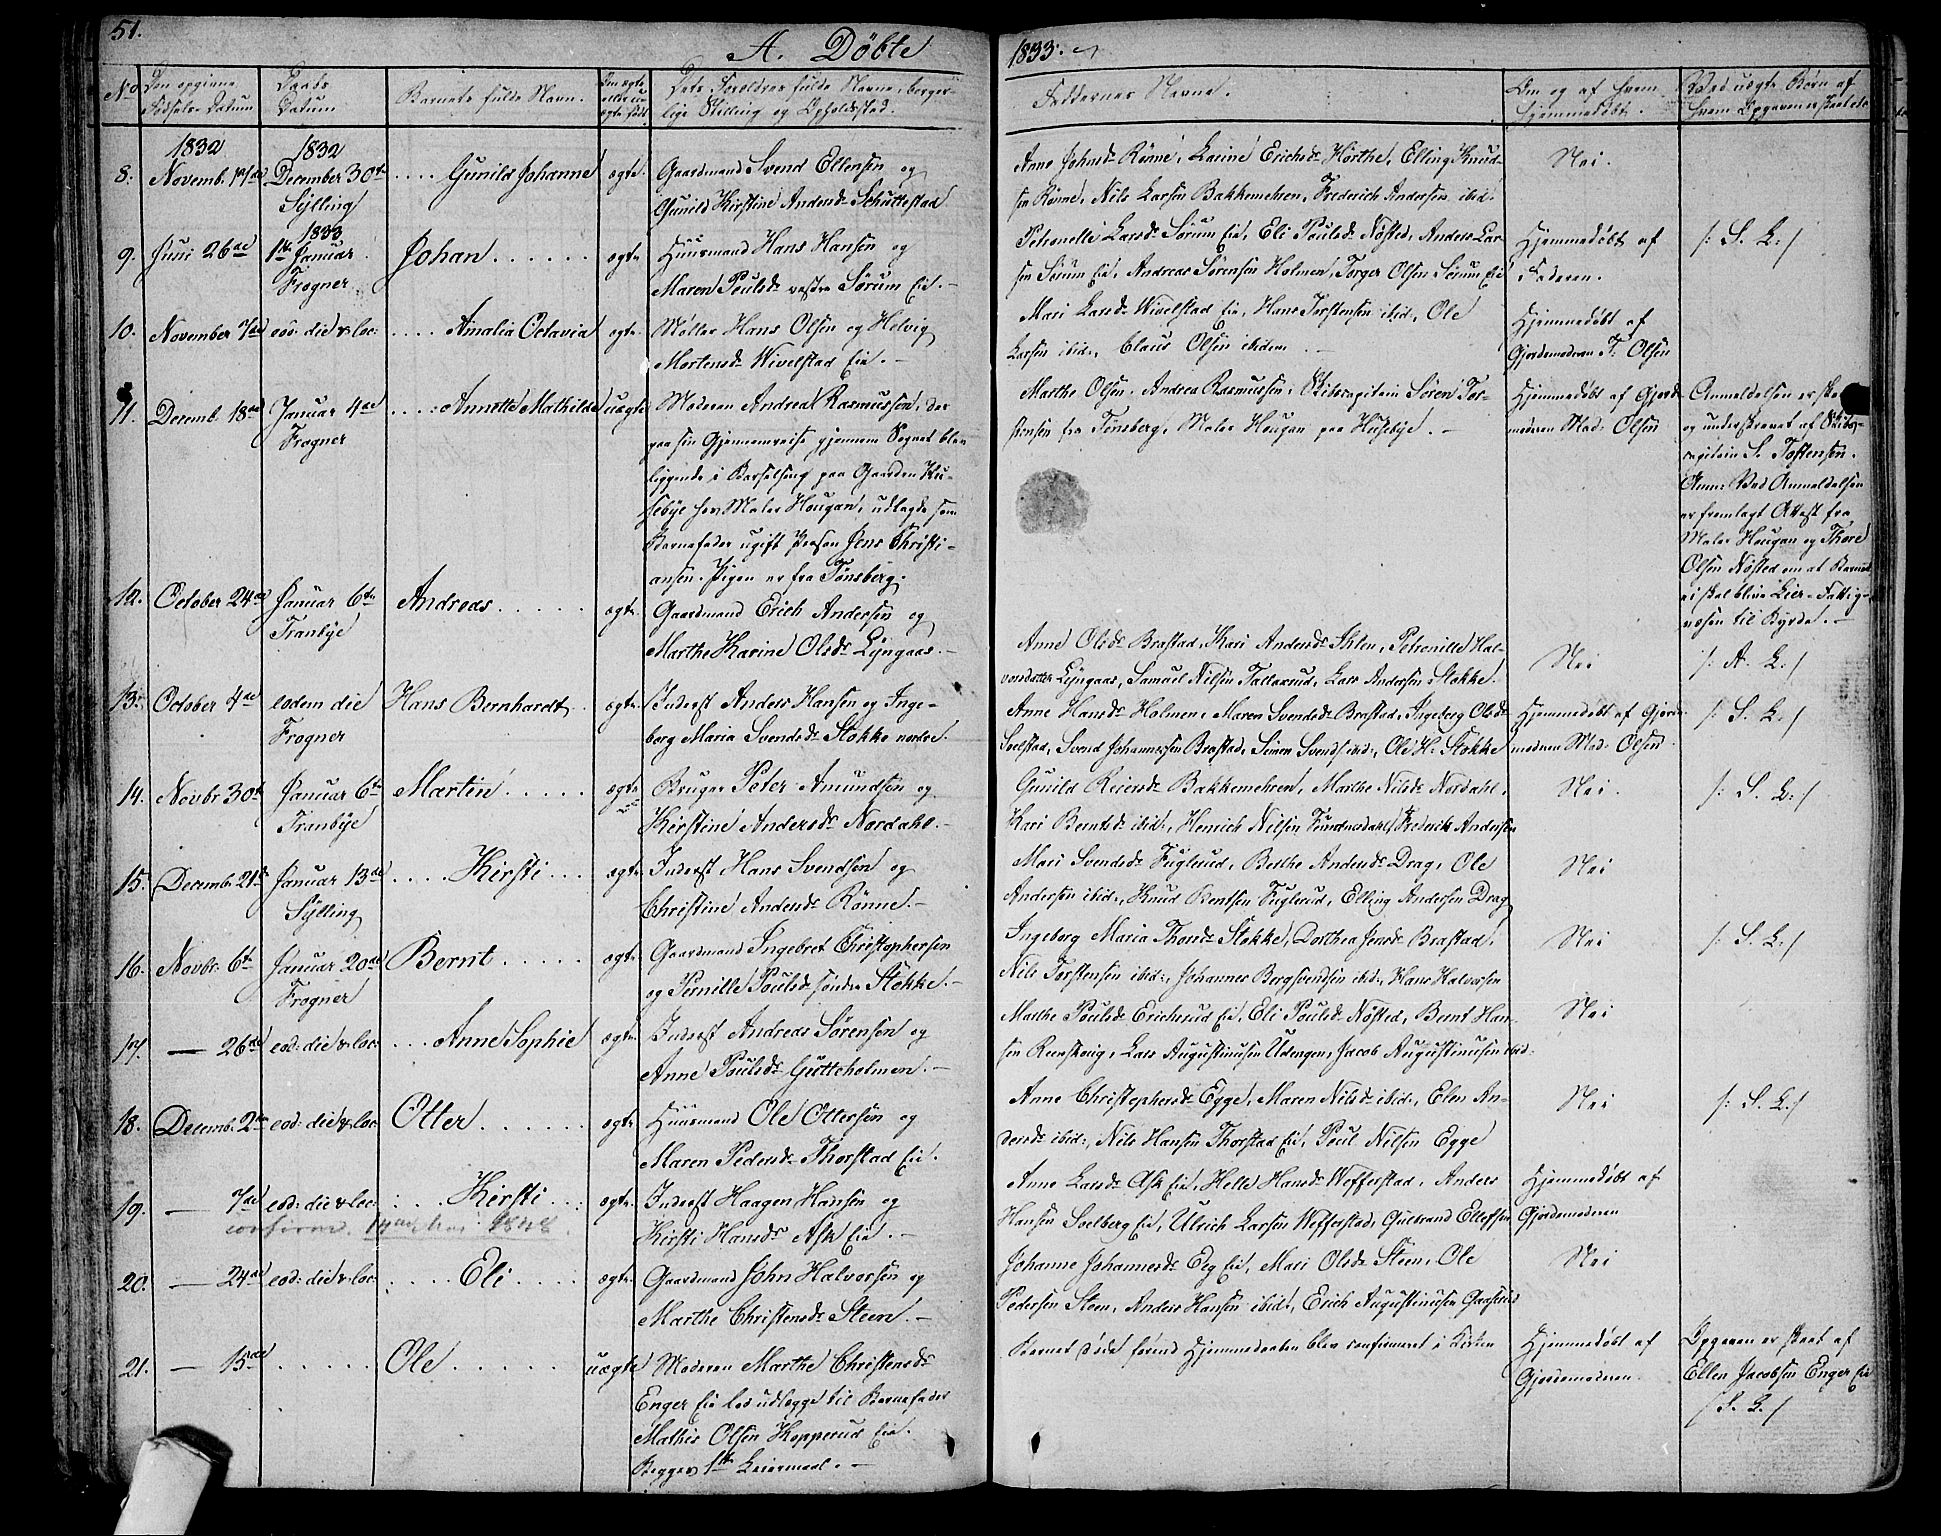 51.
A. Döbte
1833.
No
Den opgivne Fødsels-Datum
Daabs Datum
Barnets fulde Navn.
Om ægte eller uægte født
Dets Forældres fulde Navne, borgerlige Stilling og Opholdssted.
Faddernes Navne.
Om og af hvem hjemmedøbt.
Ved uægte Børn af hvem Opgaven er skeet etc
1832
1832
8. Novemb. 17de December 30te .... Gunild Johanne ægte. Gaardmand Svend Ellensen og
Sylling
Gunild Kirstine Andersdr Schuttestad
Anne Johnsdr Rönne, Karine Erichsdr Hörthe, Elling Knud-
sen Rönne, Nils Larsen Bakkemehren, Frederich Andersen ibid.
Nei.
1833
9. Juni 26de 1te Januar Johan ...... ægte Huusmand Hans Hansen og
Frogner
Maren Poulsdr vestre Sørum Eie.
Petronelle Larsdr Sørum Eie, Eli Poulsdr Nøsted, Anders Lar-
sen Sørum Eie, Andreas Sørensen Holmen, Torger Olsen Sørum Eie
Hjemmedøbt af
Faderen.
/: S. L: /
10. November 7de eod: die & loc: .... Amalia Octavia ægte Møller Hans Olsen og Helvig
Mortensdr Wivelstad Eie.
Mari Larsdr Wivelstad Eie, Hans Torstensen ibid:, Ole
Larsen ibid:, Claus Olsen ibidem
Hjemmedøbt af
Gjordemoderen T: Olsen
11. Decemb. 18de Januar 4de .... Annette Mathilde uægte Moderen Andrea Rasmussen, der
Frogner
paa sin Gjennemreise gjennem Sognet blev
liggende i Barselseng paa Gaarden Hu-
sebye hos Maler Hougan, udlagde som
Barnefader ugift Person Jens Christi-
ansen. Pigen er fra Tønsberg.
Marthe Olsen, Andrea Rasmussen, Skibscapitain Søren Tor-
stensen fra Tønsberg, Maler Hougan paa Husebye.
Hjemmedøbt af Gjorde-
moderen Mad: Olsen
Anmeldelsen er skeet
og underskrevet af Skibs-
capitain S. Tostensen.
Anm: Ved Anmeldelsen
er fremlagt Attest fra
Maler Hougan og Thore
Olsen Nøsted om at Barnet
ei skal blive Lier-Fattig-
væsen til Byrde.
12. October 24de Januar 6te Andreas ..... ægte. Gaardmand Erich Andersen og
Tranbye
Marthe Karine Olsdr Lyngaas.
Anne Olsdr Brastad, Kari Andersdr Ihlen, Petronille Hal-
vorsdatter Lyngaas, Samuel Nilsen Tallaxrud, Lars Andersen Stokke.
Nei
/: A. L: /
13. October 4de eodem die Hans Bernhardt ægte. Inderst Anders Hansen og Inge-
Frogner
borg Maria Svendsdr Stokke nordre.
Anne Hansdr Holmen, Maren Svendsdr Brastad, Ingeborg Olsdr
Soelstad, Svend Johannessen Brastad, Simen Svends. ibid:, Ole H: Stokke
Hjemmedøbt af Gjorde-
moderen Mad: Olsen
/: S. L: /
14. Novbr 30te Januar 6te Martin ..... ægte Bruger Peter Amundsen og
Tranbye
Kirstine Andersdr Nordahl.
Gunild Reiersdr Bakkemehren, Marthe Nilsdr Nordahl,
Kari Berntsdr ibid:, Henrich Nilsen Tuverudsdahl, Frederik Andersen
Nei.
/: S. L: /
15. Decemb. 21de Januar 13de .... Kirsti ... ægte Inderst Hans Svendsen og
Sylling
Christine Andersdr Rönne.
Mari Svendsdr Fuglerud, Berthe Andersdr Drag, Ole
Andersen ibid:, Knud Bentsen Fuglerud, Elling Andersen Drag
Nei
16. Novbr. 6te Januar 20de Bernt ..... ægte Gaardmand Ingebret Christophersen
Frogner
og Pernille Poulsdr søndre Stokke.
Ingeborg Maria Thorsdr Stokke, Dorthea Jensdr Brastad,
Nils Torstensen ibid:, Johannes Bergsvendsen ibid:, Hans Halvorsen
Nei
/: S. L: /
17. — 26de eod: die & loc: ... Anne Sophie ægte Inderst Andreas Sørensen og
Anne Poulsdr Gutteholmen.
Marthe Poulsdr Erichsrud Eie, Eli Poulsdr Nøsted, Bernt Han-
sen Reenskoug, Lars Augustinusen Udengen, Jacob Augustinusen ibid:
Nei
18. Decemb. 2den eod: die & loc: Otter ...... ægte Huusmand Ole Ottersen og
Maren Pedersdr Thorstad Eie.
Anne Christophersdr Egge, Maren Nilsdr ibid:, Elen An-
dersdr ibid:, Nils Hansen Thorstad Eie, Poul Nilsen Egge
Nei
/: S. L: /
19. — 7de eod: die & loc: .... Kirsti ... ægte. Inderst Haagen Hansen og
Kirsti Hansdr Ask Eie.
Anne Larsdr Ask Eie, Helle Hansdr Wefferstad, Anders
Hansen Soelberg Eie, Ulrich Larsen Wefferstad, Gulbrand Ellefsen
Hjemmedøbt af
Gjordemoderen
20. — 24de eod: die & loc: .... Eli .... ægte. Gaardmand John Halvorsen og
Marthe Christensdr Steen.
Johanne Johannesdr Eeg Eie, Mari Olsdr Steen, Ole
Pedersen Steen, Anders Hansen ibid:, Erich Augustinusen Gaasrud
Nei
21. — 15de ..... Ole ...... uægte Moderen Marthe Christensdr
Enger Eie lod udlægge til Barnefader
Mathis Olsen Kopperud Eie.
Begges 1ste Leiermaal.
Barnet døde førend Hjemmedaaben blev confirmeret i Kirken
Hjemmedøbt af
Gjordemoderen.
Opgaven er skeet af
Ellen Jacobsen Enger Eie
/: S. L: /